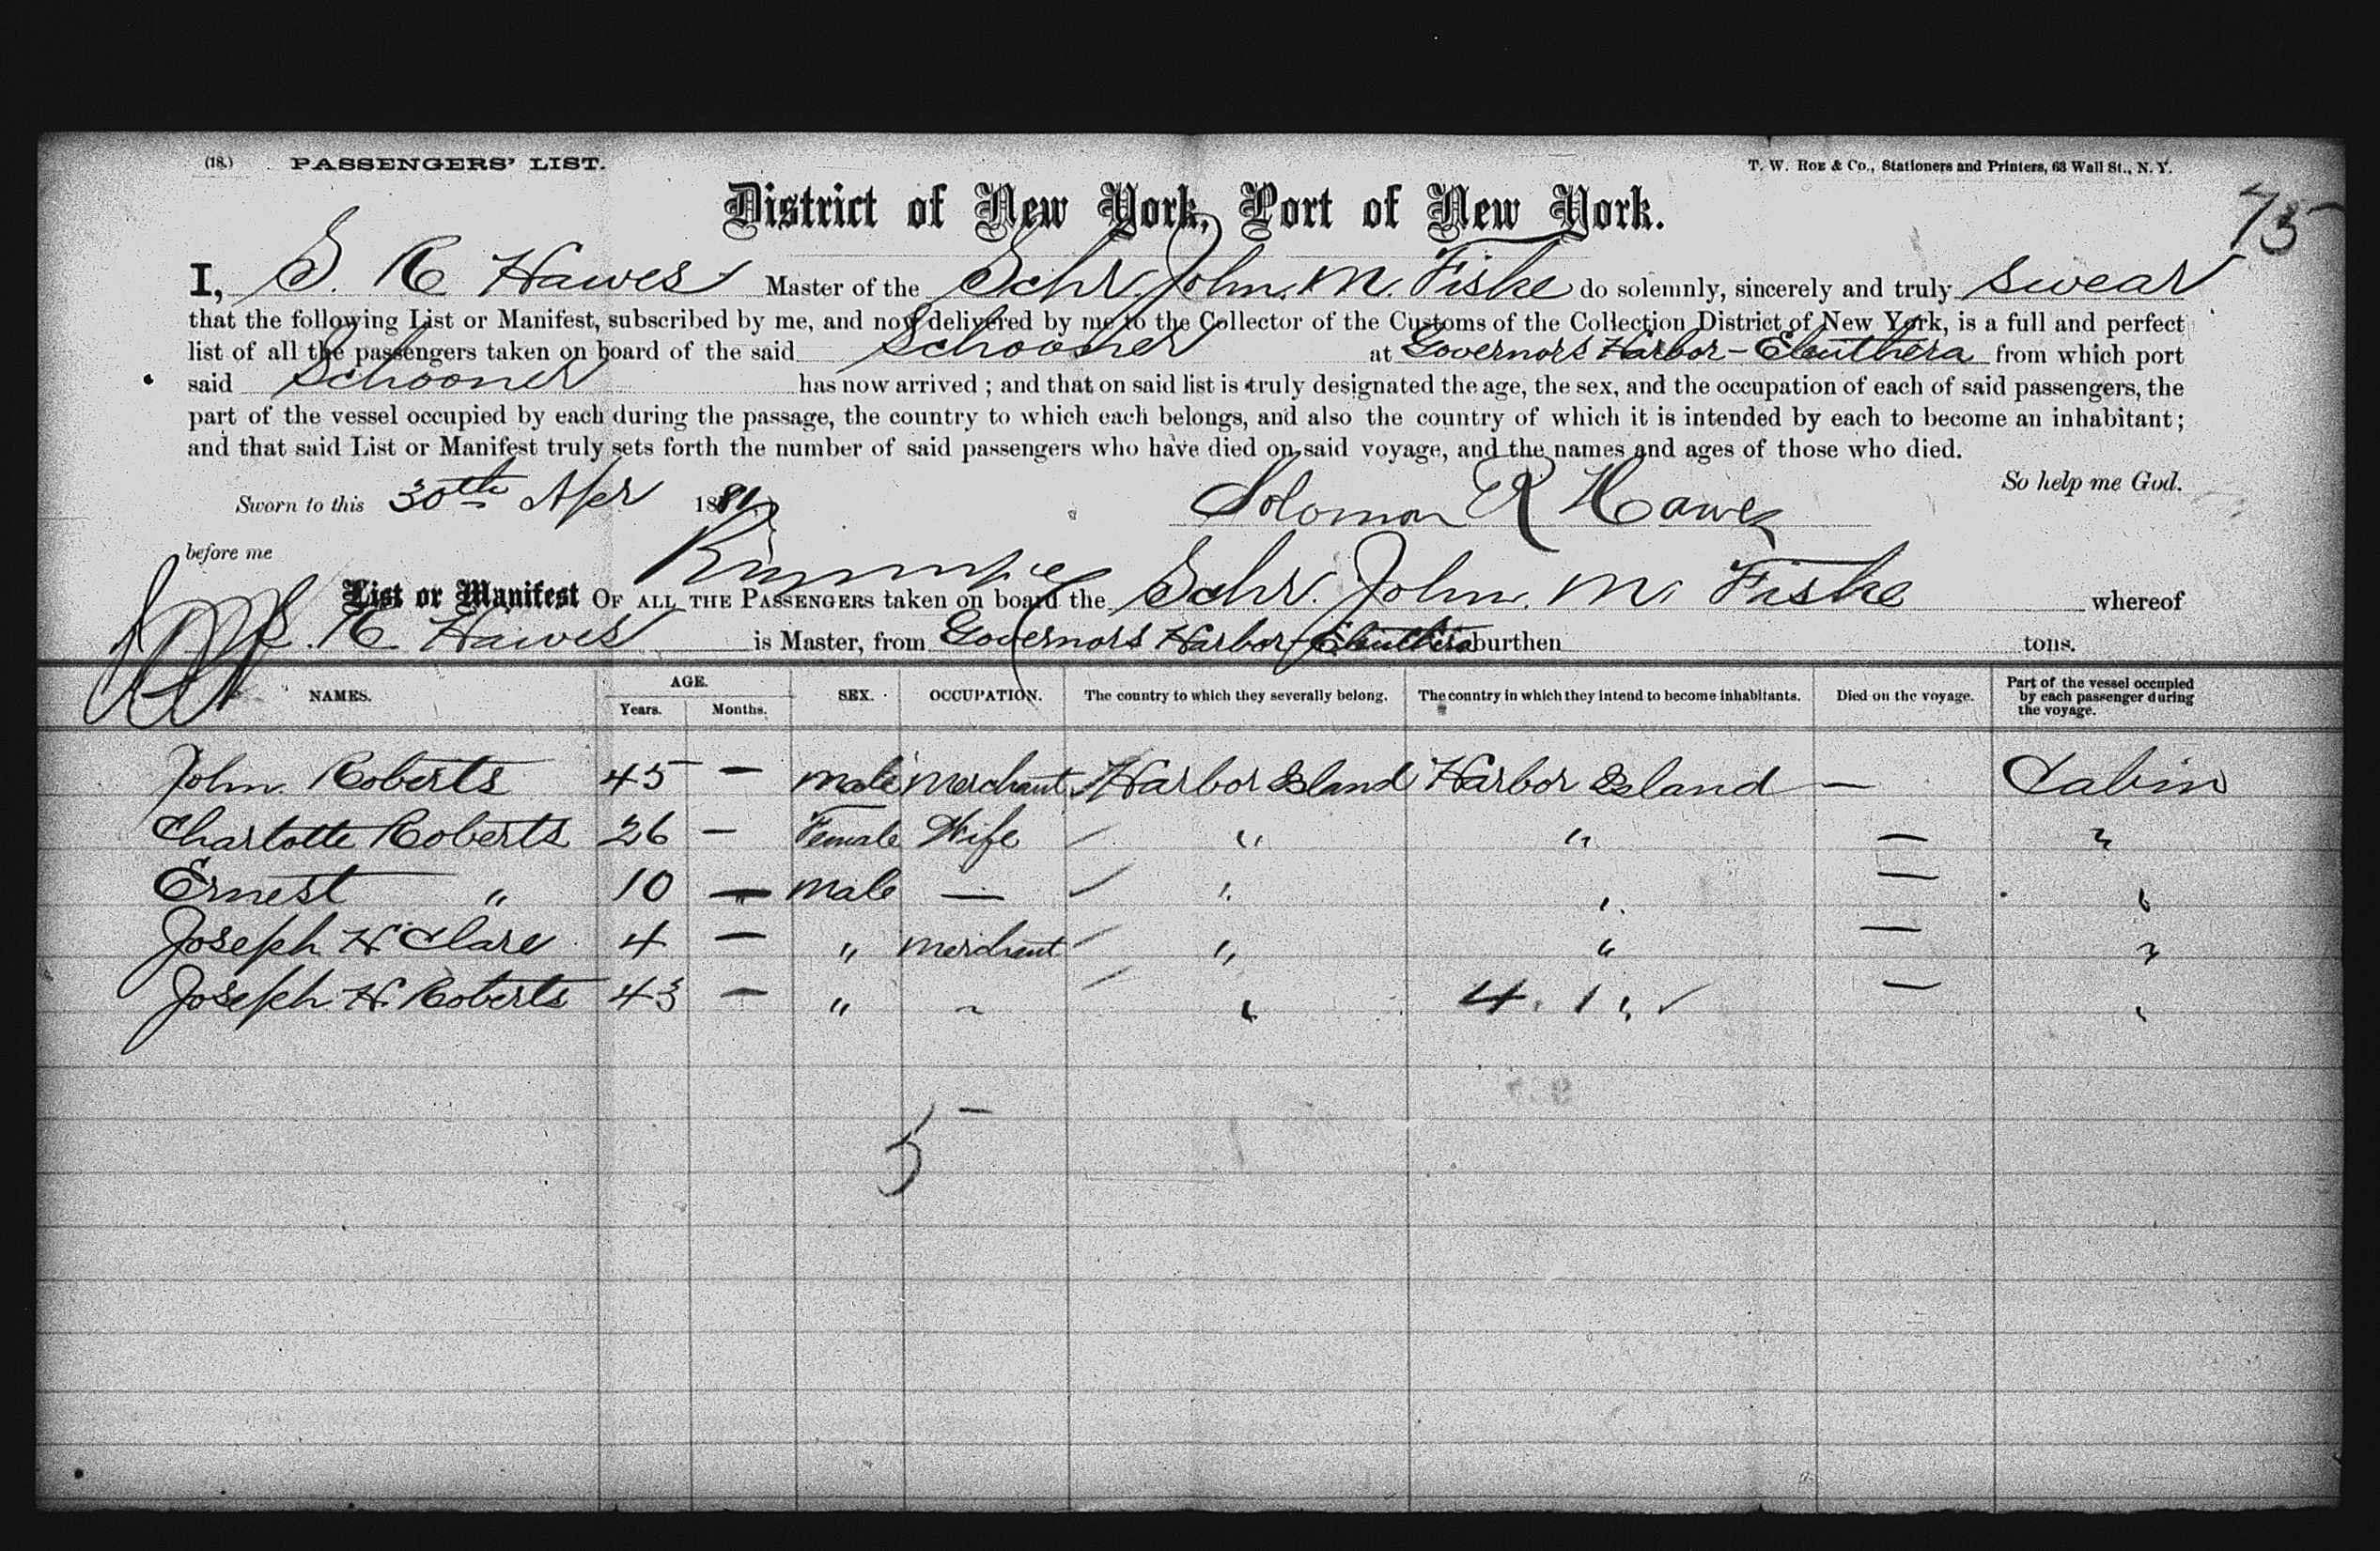 (18.) PASSENGERS' LIST.
T. W. Roe & Co., Stationers and Printers, 63 Wall St., N. Y.
75
District of New York, Port of New York.
I, S. R Hawes Master of the Schr. John. M. Fiske do solemnly, sincerely and truly swear
that the following List or Manifest, subscribed by me, and now delivered by me to the Collector of the Customs of the Collection District of New York, is a full and perfect
list of all the passengers taken on board of the said Schooner at Governors Harbor - Eleuthera from which port
said Schooner has now arrived ; and that on said list is truly designated the age, the sex, and the occupation of each of said passengers, the
part of the vessel occupied by each during the passage, the country to which each belongs, and also the country of which it is intended by each to become an inhabitant ;
and that said List or Manifest truly sets forth the number of said passengers who have died on said voyage, and the names and ages of those who died.
So help me God.
Sworn to this 30th Apr 188
Solomon R Hawes
before me
List or Manifest OF ALL THE PASSENGERS taken on board the Schr. John. M. Fiske whereof
S. R Hawes is Master, from Governors Harbor - Eleuthera burthen tons.
NAMES. AGE. Years. Months. SEX. OCCUPATION. The country to which they severally belong. The country in which they intend to become inhabitants. Died on the voyage. Part of the vessel occupied by each passenger during the voyage.
John. Roberts 45 — male merchant Harbor Island Harbor Island — Cabin
Charlotte Roberts 26 — Female Wife " " — "
Ernest " 10 — male — " " — "
Joseph H Clare 4 — " merchant " " — "
Joseph. H. Roberts 43 — " " " 4. 1 " — "
5